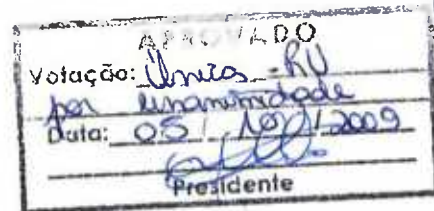 APROVADO
Votação: Única - RU
por unanimidade
Data: 05 / 10 / 2009
Presidente